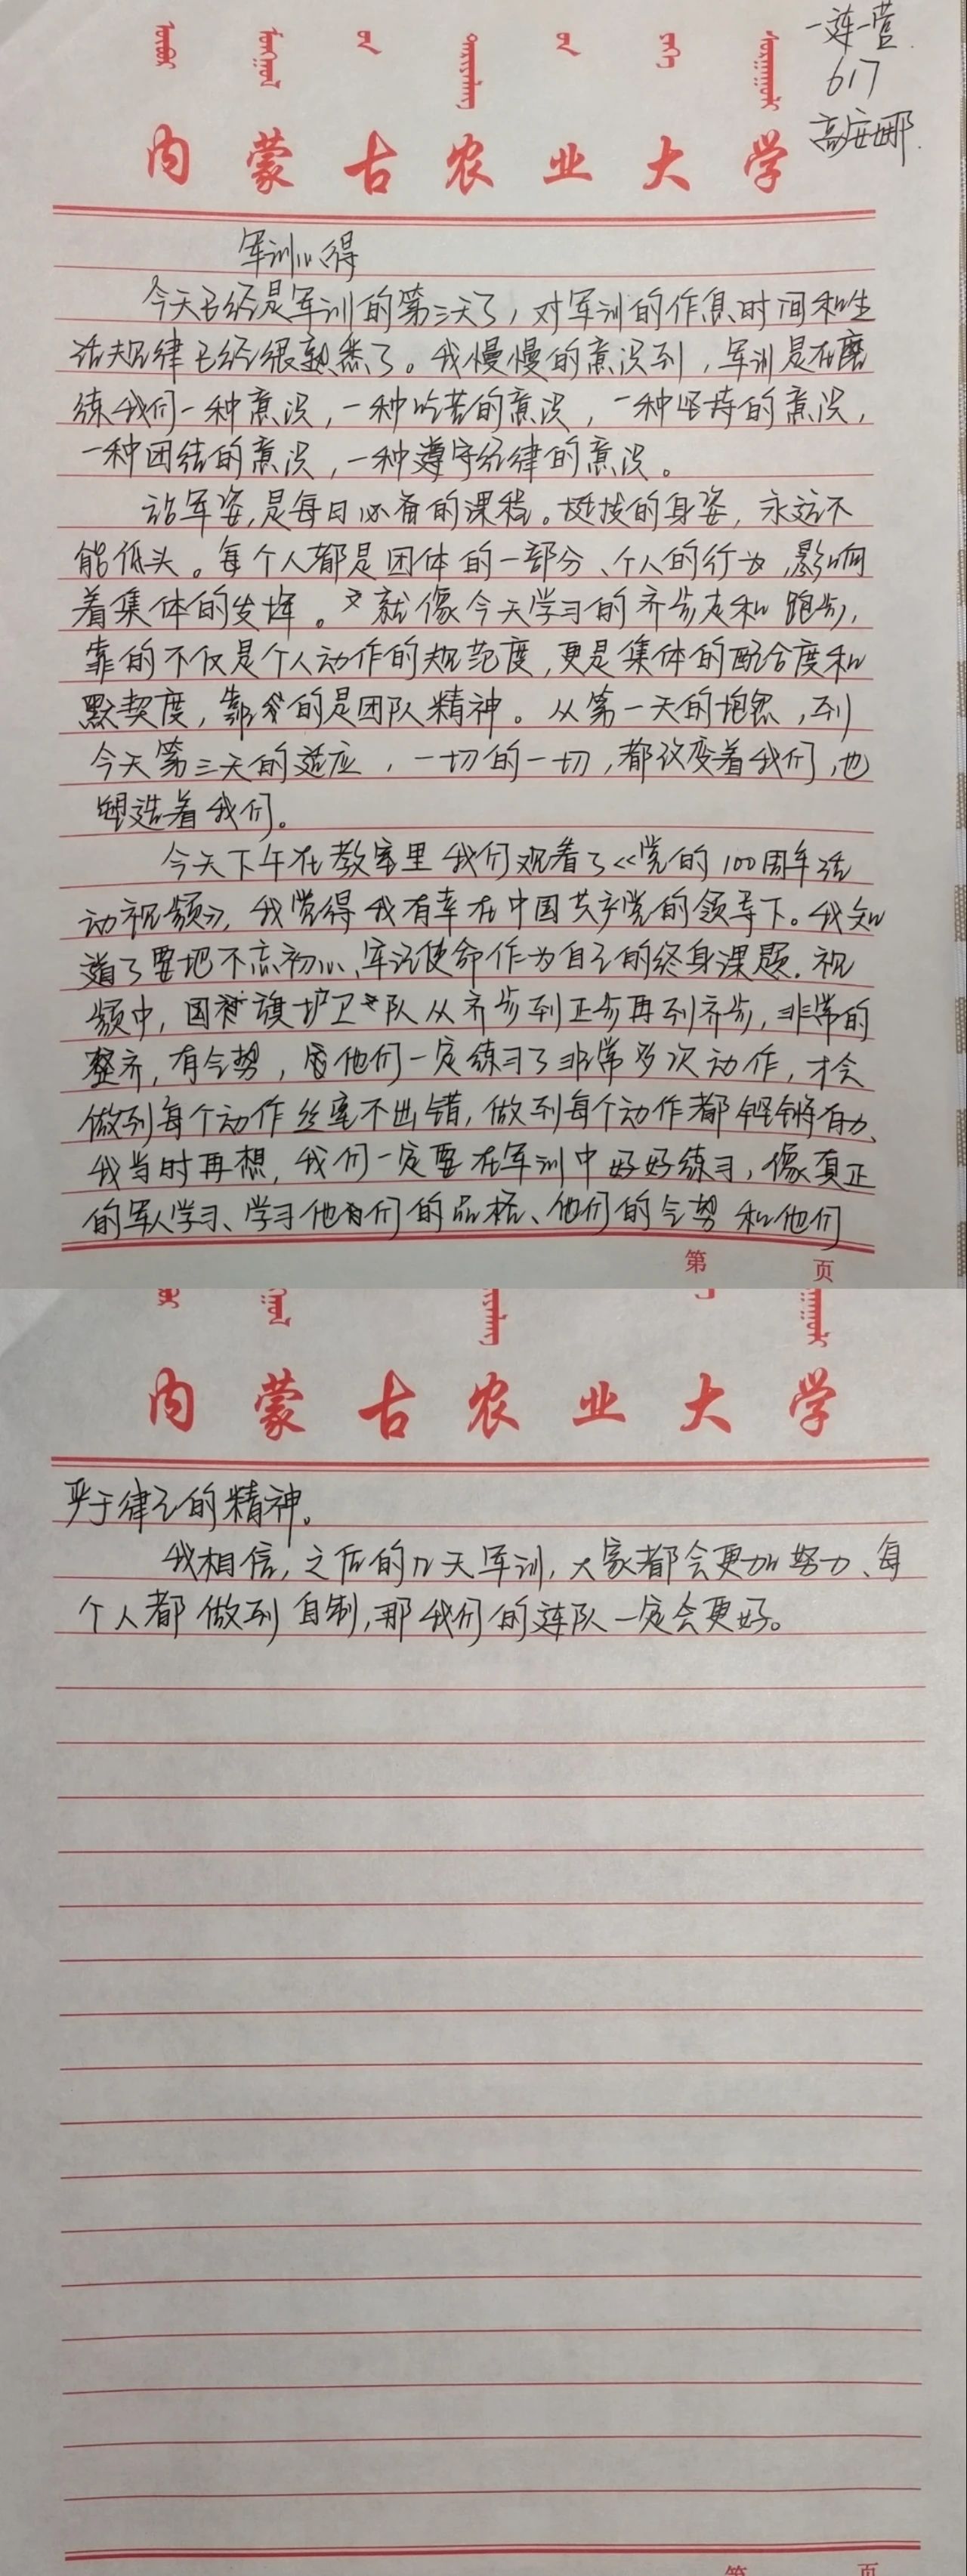 一连一营
617
高安娜
内蒙古农业大学
军训心得
今天已经是军训的第三天了，对军训的作息时间和生
活规律已经很熟悉了。我慢慢的意识到，军训是在磨
练我们一种意识，一种吃苦的意识，一种坚持的意识，
一种团结的意识，一种遵守纪律的意识。
站军姿，是每日必备的课程。挺拔的身姿，永远不
能低头。每个人都是团体的一部分、个人的行为，影响
着集体的发挥。就像今天学习的齐步走和跑步，
靠的不仅是个人动作的规范度，更是集体的配合度和
默契度，靠的是团队精神。从第一天的抱怨，到
今天第三天的适应，一切的一切，都改变着我们，也
塑造着我们。
今天下午在教室里我们观看了《党的100周年活
动视频》，我觉得我有幸在中国共产党的领导下。我知
道了要把不忘初心、牢记使命作为自己的终身课题．视
频中，国旗护卫队从齐步到正步再到齐步，非常的
整齐，有气势，他们一定练习了非常多次动作，才会
做到每个动作丝毫不出错，做到每个动作都铿锵有力、
我当时再想，我们一定要在军训中好好练习，像真正
的军人学习、学习他们的品格、他们的气势和他们
第 页
内蒙古农业大学
严于律己的精神。
我相信，之后的几天军训，大家都会更加努力、每
个人都做到自制，那我们的连队一定会更好。
第 页